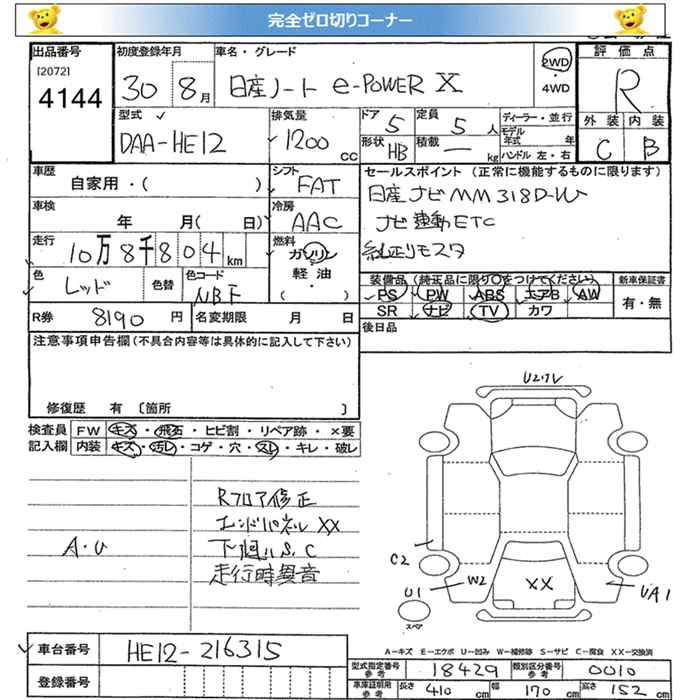 完全ゼロ切りコーナー
出品番号
[2072]
4144
初度登録年月
30 8月
車名・グレード
日産ノート e-POWER X
2WD
・4WD
評価点
R
外装 内装
C B
型式
DAA-HE12
排気量
1200 cc
ドア 5
定員 5人
形状 HB
積載 ー kg
ディーラー・並行
モデル年式 年
ハンドル 左・右
車歴
自家用・( )
シフト
FAT
セールスポイント (正常に機能するものに限ります)
日産ナビ MM318D-W
ナビ連動ETC
純正リモスタ
車検
年 月( 日)
冷房
AAC
走行
10万8千804km
燃料
ガソリン
軽油・
( )
色
レッド
色替
色コード
NBF
装備品 (純正品に限り○をつけてください)
PS PW ABS エアB AW
SR ナビ TV カワ
新車保証書
有・無
R券 8190円
名変期限 月 日
後日品
注意事項申告欄 (不具合内容等は具体的に記入して下さい)
修復歴 有 〔箇所 〕
検査員記入欄
FW キズ・飛石・ヒビ割・リペア跡・×要
内装 キズ・汚レ・コゲ・穴・スレ・キレ・破レ
A・U
Rフロア修正
エンドパネル XX
下廻りS.C
走行時異音
U2ワレ
C2
U1
W2
XX
UA1
スペア
A-キズ E-エクボ U-凹み W-補修跡 S-サビ C-腐食 XX-交換済
車台番号 HE12-216315
登録番号
型式指定番号 参考 18429
類別区分番号 参考 0010
車庫証明用 参考 長さ 410cm 幅 170cm 高さ 152cm